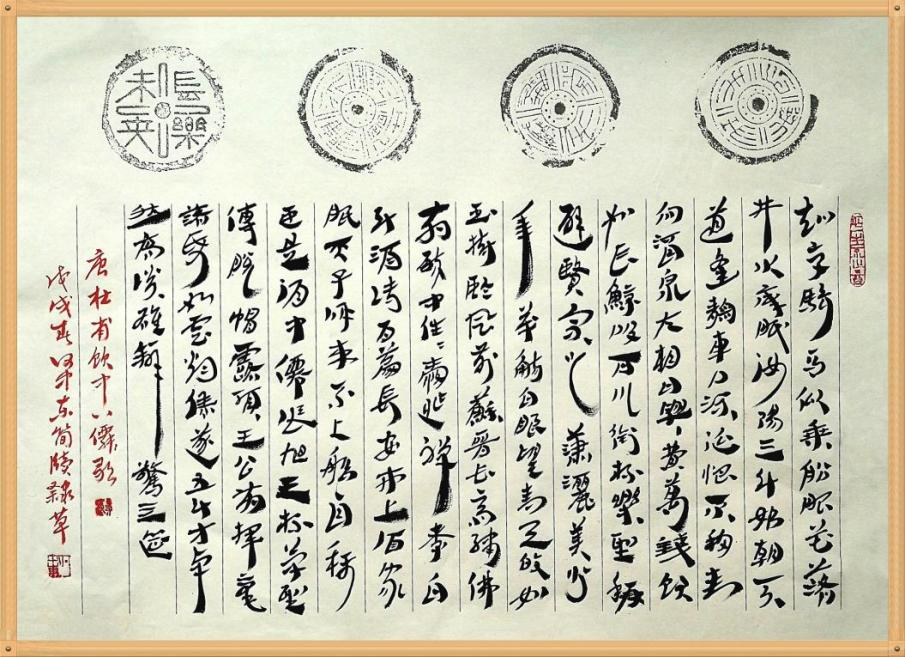 長樂未央
知章騎馬似乘船眼花落
井水底眠汝陽三斗始朝天
道逢麴車口流涎恨不移封
向酒泉左相日興費萬錢飲
如長鯨吸百川銜杯樂聖稱
避賢宗之蕭灑美少
年舉觴白眼望青天皎如
玉樹臨風前蘇晉長齋繡佛
前醉中往〻愛逃禪李白
斗酒詩百篇長安市上酒家
眠天子呼來不上船自稱
臣是酒中僊張旭三杯草聖
傳脫帽露頂王公前揮毫
落紙如雲煙焦遂五斗方卓
然高談雄辯驚四筵
唐杜甫飲中八僊歌
戊戌春東簡牘隸草